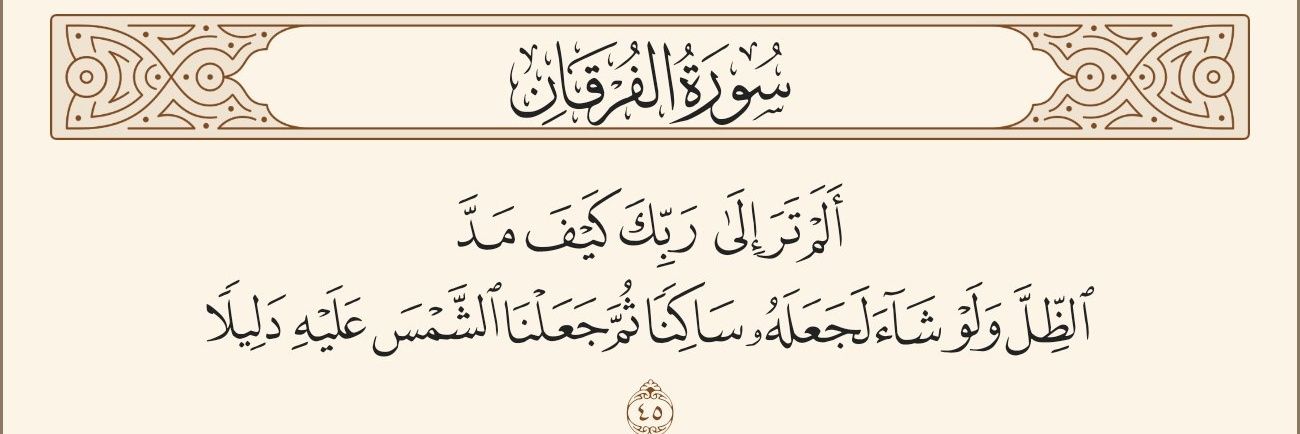 سُورَةُ الفُرْقَانِ
أَلَمْ تَرَ إِلَىٰ رَبِّكَ كَيْفَ مَدَّ
ٱلظِّلَّ وَلَوْ شَآءَ لَجَعَلَهُۥ سَاكِنًا ثُمَّ جَعَلْنَا ٱلشَّمْسَ عَلَيْهِ دَلِيلًا
٤٥